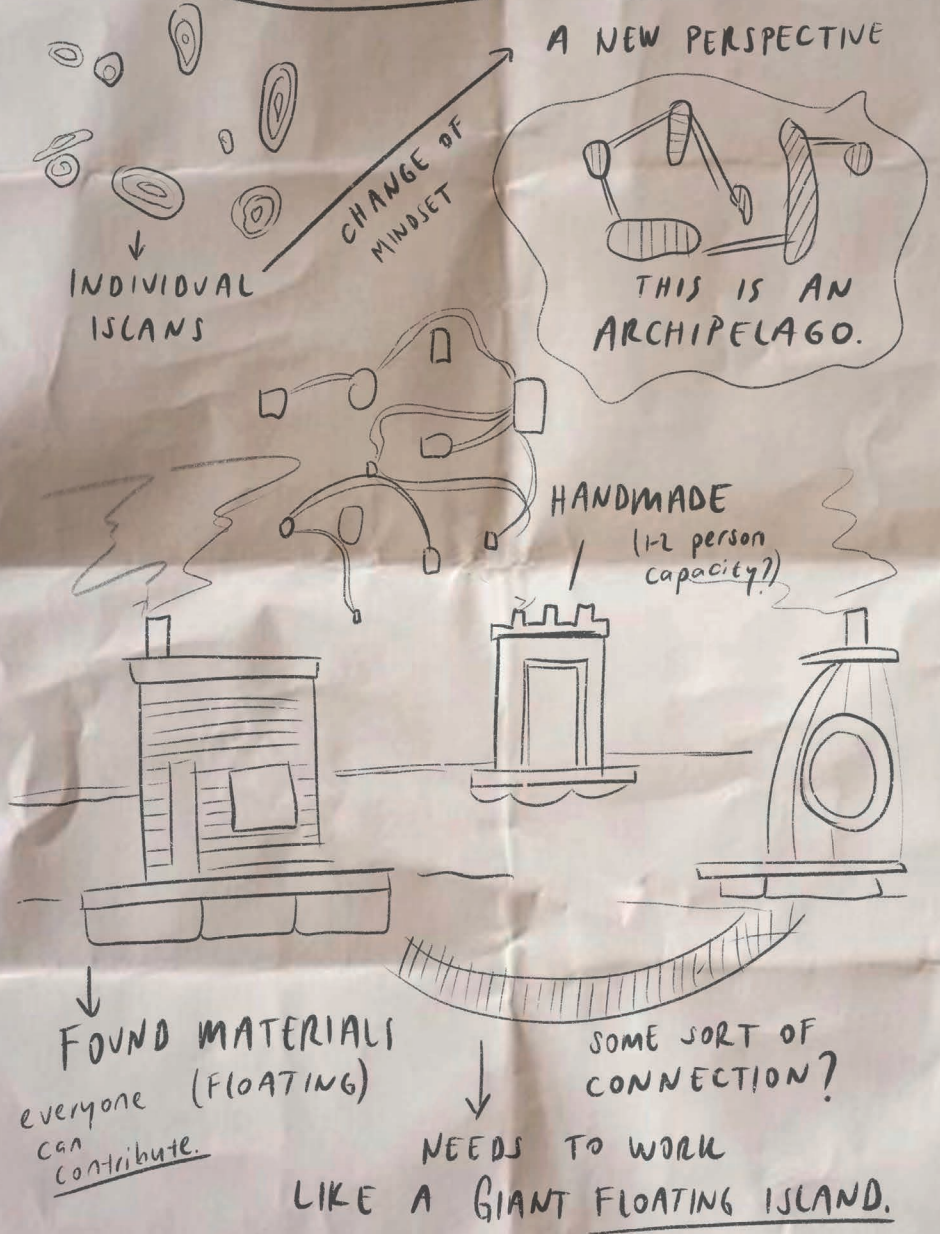 A NEW PERSPECTIVE
CHANGE OF
MINDSET
INDIVIDUAL
ISLANS
THIS IS AN
ARCHIPELAGO.
HANDMADE
(1-2 person
capacity?)
FOUND MATERIALS
(FLOATING)
everyone
can
contribute.
SOME SORT OF
CONNECTION?
NEEDS TO WORK
LIKE A GIANT FLOATING ISLAND.